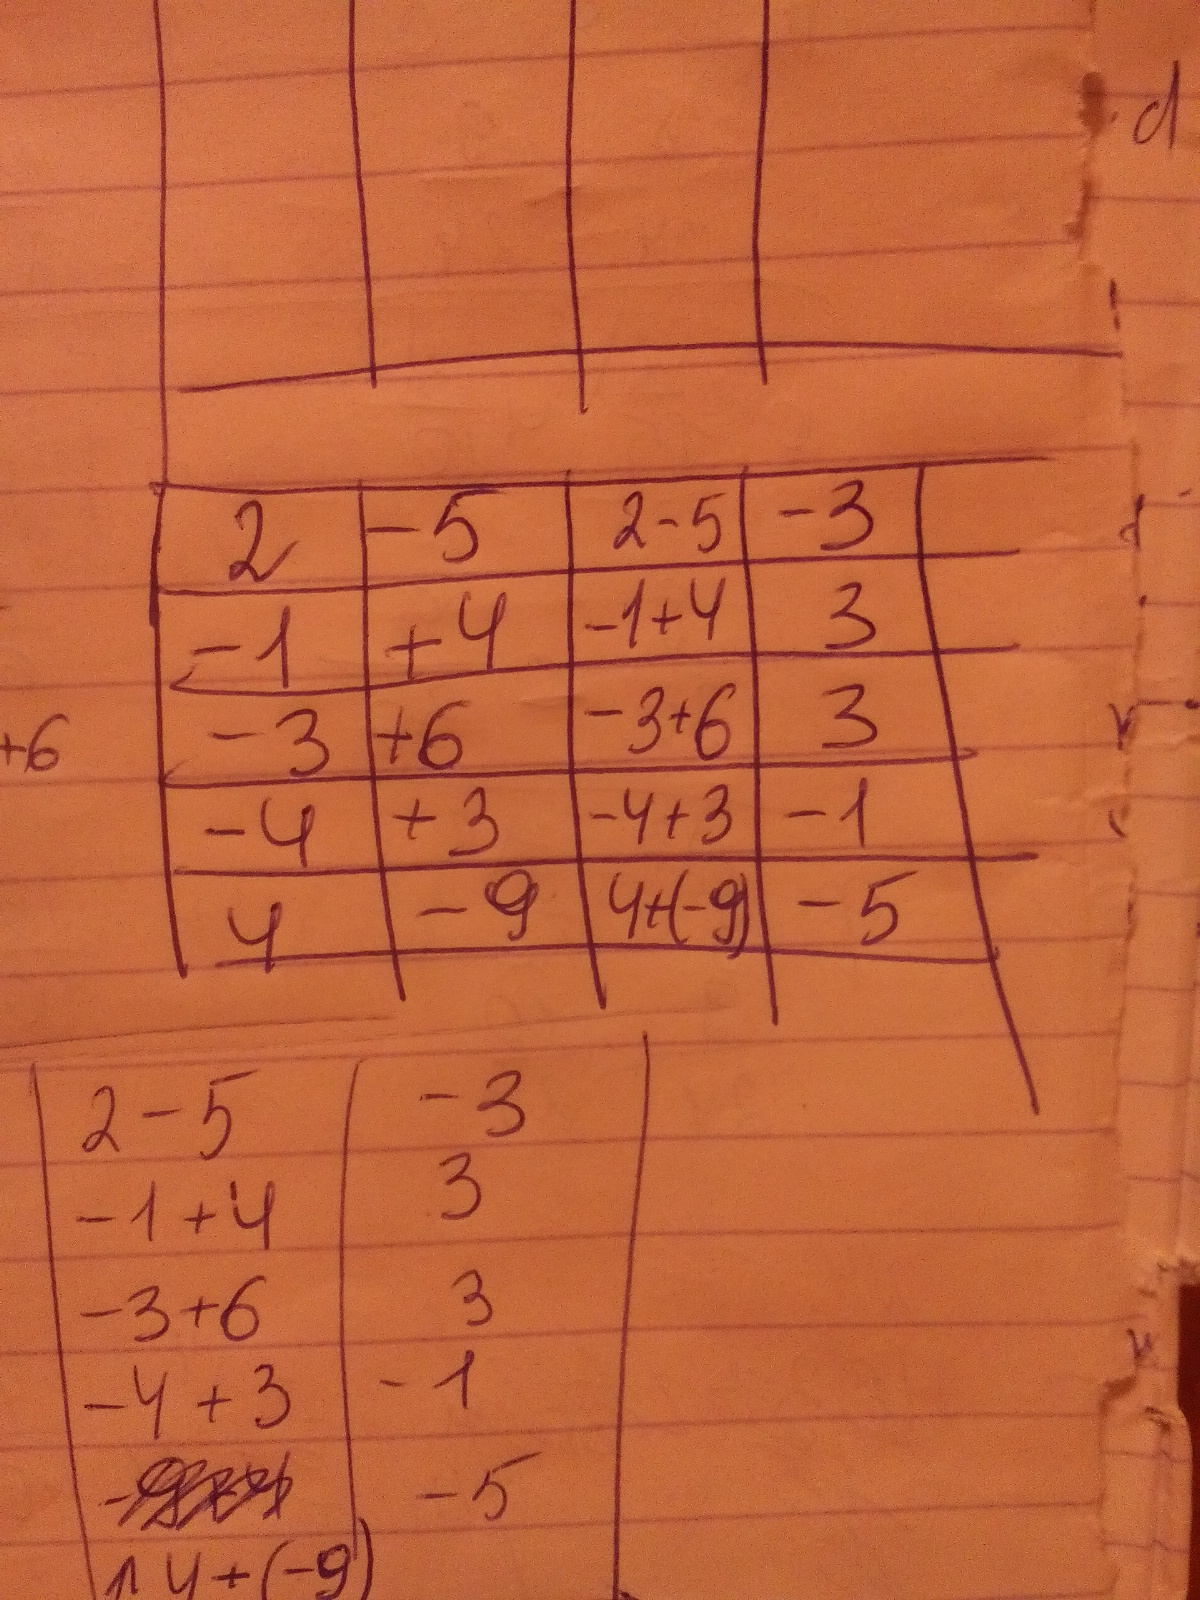 d
2 -5 2-5 -3
-1 +4 -1+4 3
-3 +6 -3+6 3
+6
-4 +3 -4+3 -1
4 -9 4+(-9) -5
2-5 -3
-1+4 3
-3+6 3
-4+3 -1
-5
4+(-9)